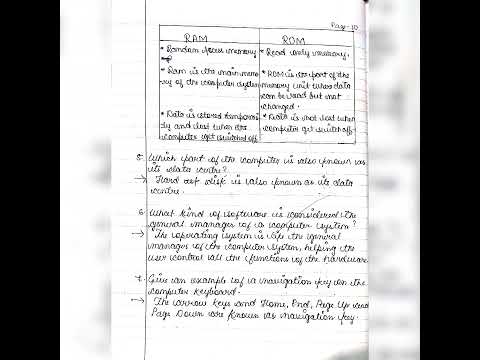 Page-10
RAM
ROM
* Random Access memory
* Ram is the main memo
ry of the computer system
* Data is stored temporari
ly and lost when the
computer get switched off
* Read only memory.
* ROM is the part of the
memory unit where data
can be read but not
changed.
* Data is not lost when
computer get switch off.
5. Which part of the computer is also known as
its data centre?
→ Hard disk is also known as its data
centre.
6. What kind of software is considered the
general manager of a computer system?
→ The operating system is the general
manager of the computer system, helping the
user control all the functions of the hardware.
7. Give an example of a navigation key on the
computer keyboard.
→ The arrow keys and Home, End, Page Up and
Page Down are known as navigation key.